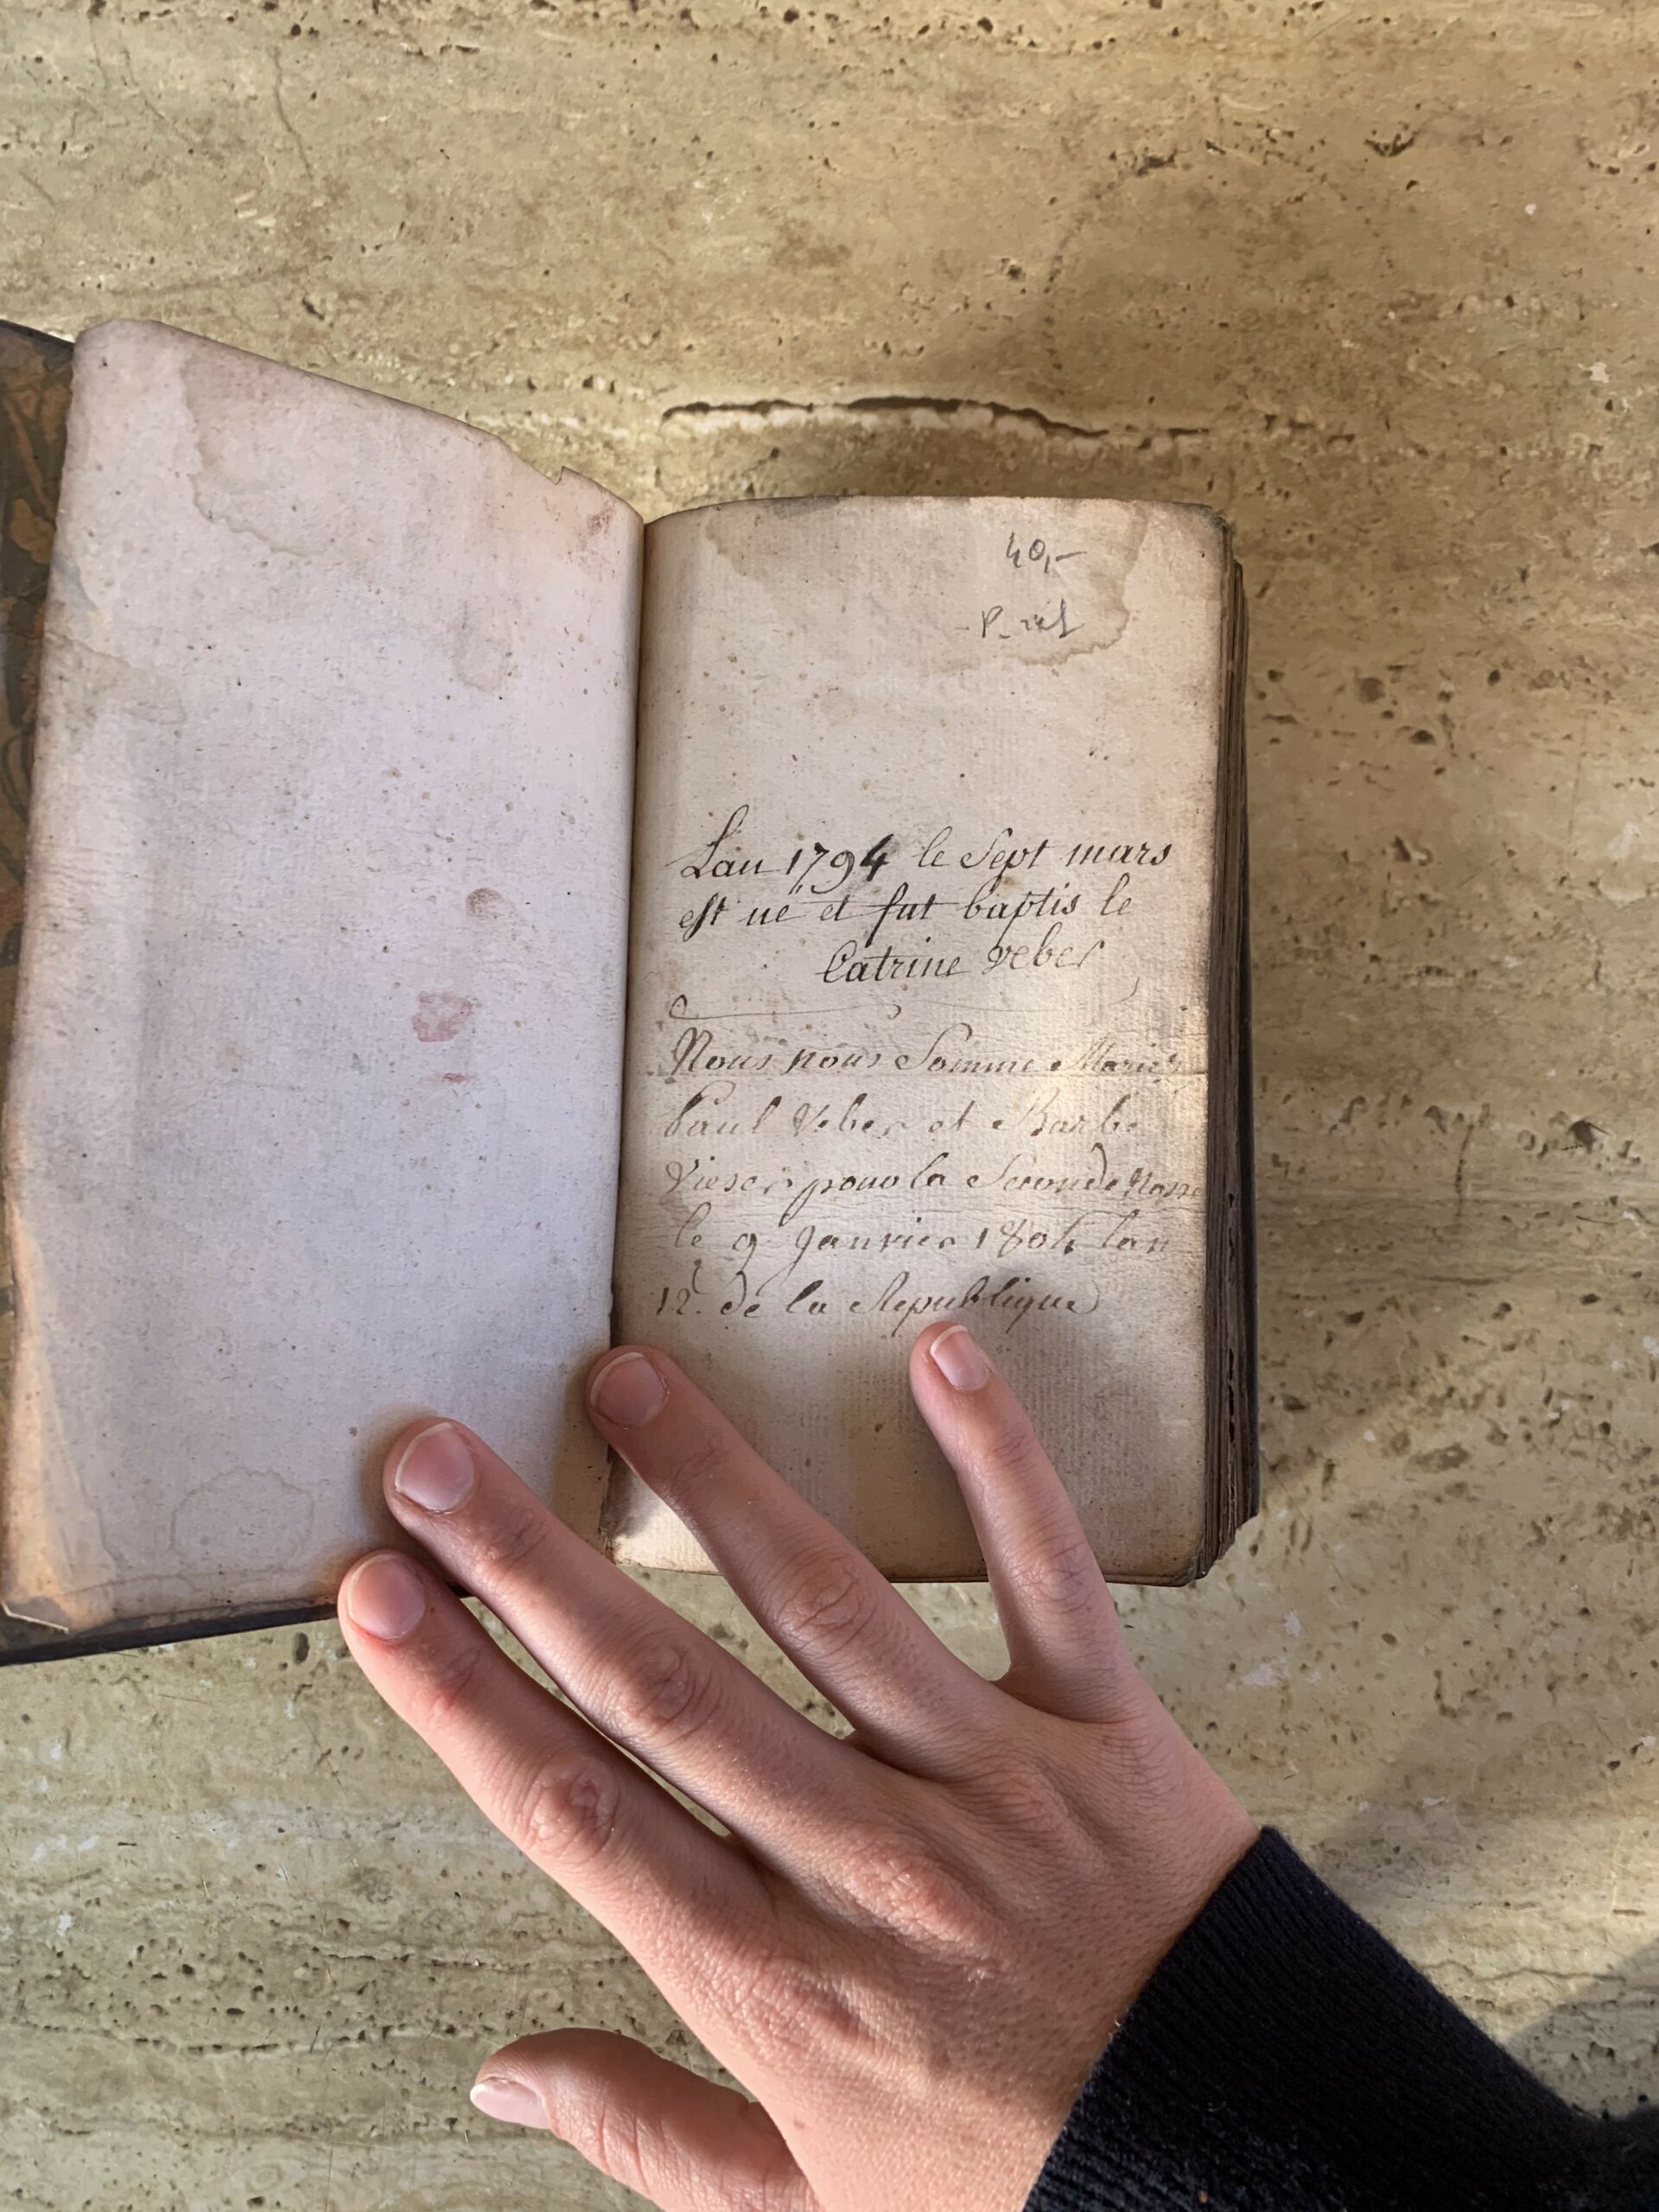 40,-
Lan 1794 le Sept mars
est né et fut baptis le
Catrine veber
Nous nous Somme Mariez
Paul Veber et Barbe
pour la Seconde
le 9 Janvier 1804 lan
12.e de la Republique